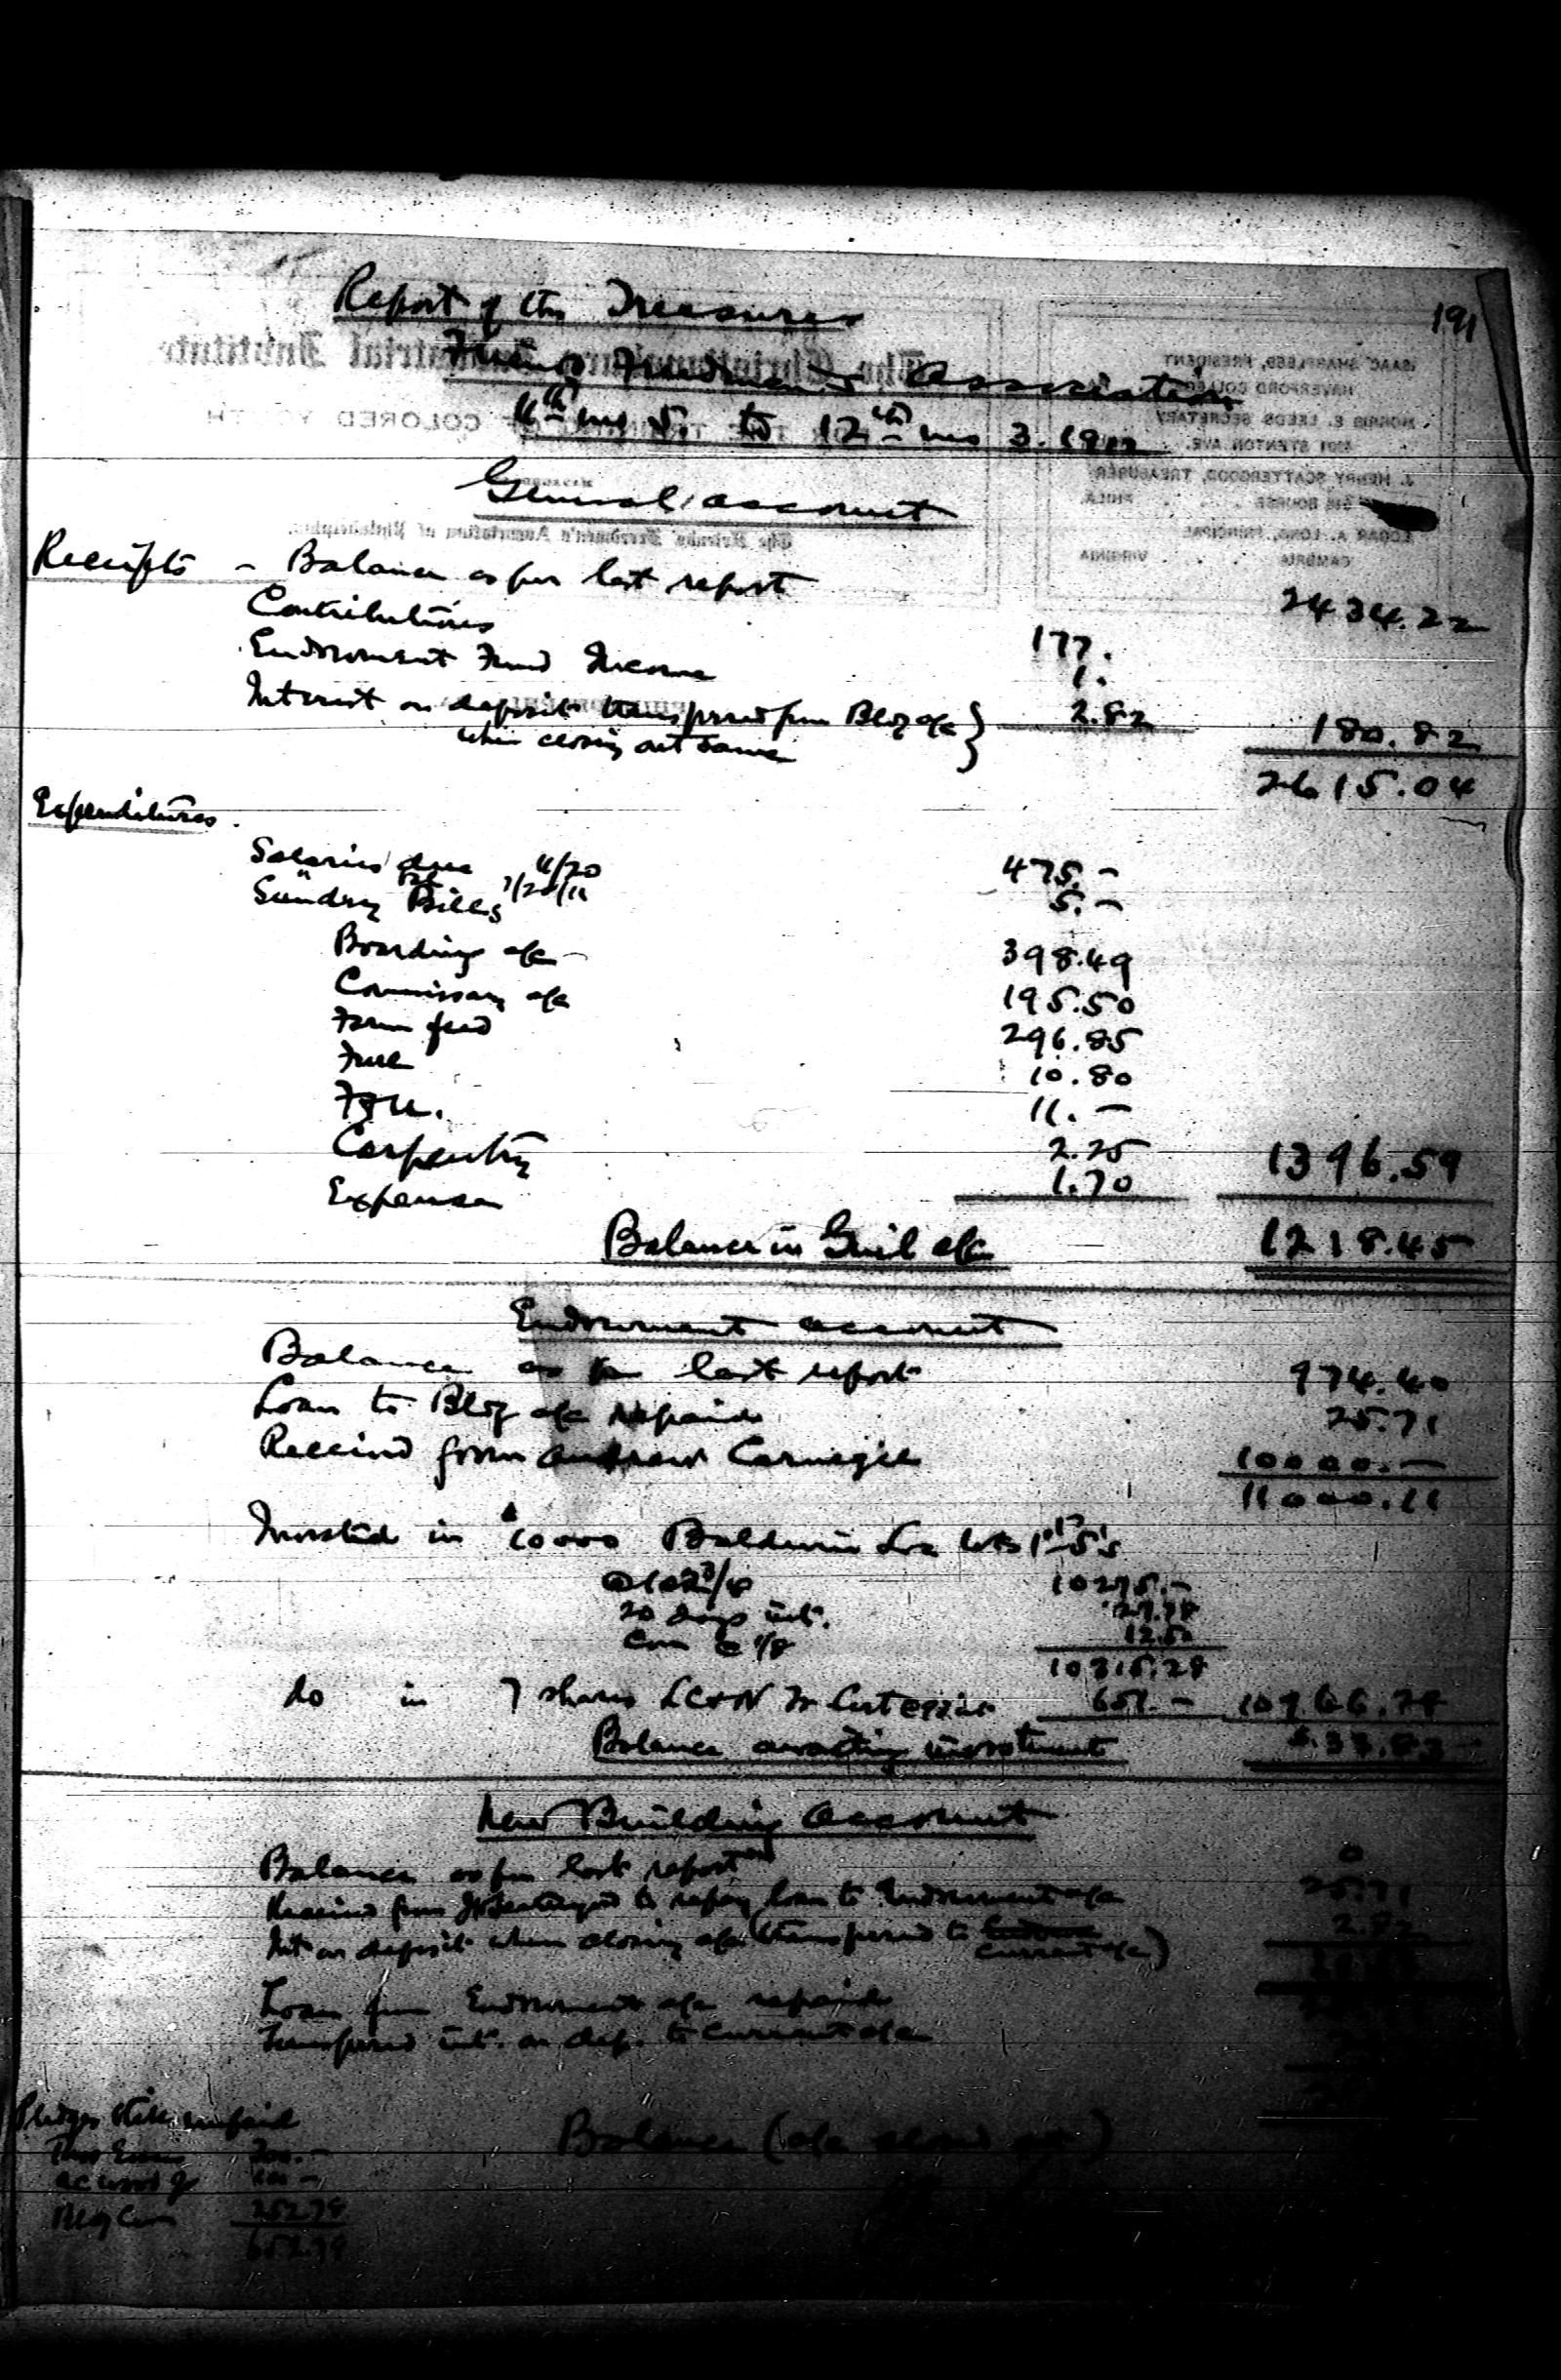 191
Report of the Treasurer
Friends Freedmen's Association
11th mo 5. to 12th mo 3. 1912
General account
Receipts - Balance as per last report 2434.22
Contributions 177.
Endowment Fund Income 1.
Interest on deposit transferred from Bldg a/c } 2.82 180.82
when closing out same
2615.04
Expenditures.
Salaries due 11/20 475.-
" 7/20/11 5.-
Sundry Bills
Boarding a/c 398.49
Commissary a/c 195.50
Farm feed 296.85
Fuel 10.80
11.-
Carpentry 2.25
Expense 1.70 1396.59
Balance in Gen'l a/c 1218.45
Endowment account
Balance as per last report 974.40
Loan to Bldg a/c repaid 25.71
Received from Andrew Carnegie 10000.-
11000.11
Invested in $10000 Baldwin Loc Wks 1st 5's
@ 102 3/4 10275.-
20 days int. 27.78
Com @ 1/8 12.50
10315.28
do in 7 shares LC&N Tr Cert 651.-
Balance awaiting investment
New Building account
Balance as per last report 0
Received from to repay loan to Endowment a/c 25.71
Int on deposit when closing a/c (transferred to current a/c) 2.82
Loan from Endowment a/c repaid
Transferred int. on dep. to Current a/c
Balance (a/c closed out)
Pledges still unpaid
AC Wood Jr
252.78
652.78
The Christiansburg Industrial Institute
FOR THE TRAINING OF COLORED YOUTH
The Friends' Freedmen's Association of Philadelphia
ISAAC SHARPLESS, PRESIDENT
HAVERFORD COLLEGE
MORRIS E. LEEDS SECRETARY
4901 STENTON AVE.
J. HENRY SCATTERGOOD, TREASURER
BOURSE PHILA.
EDGAR A. LONG, PRINCIPAL
CAMBRIA VIRGINIA